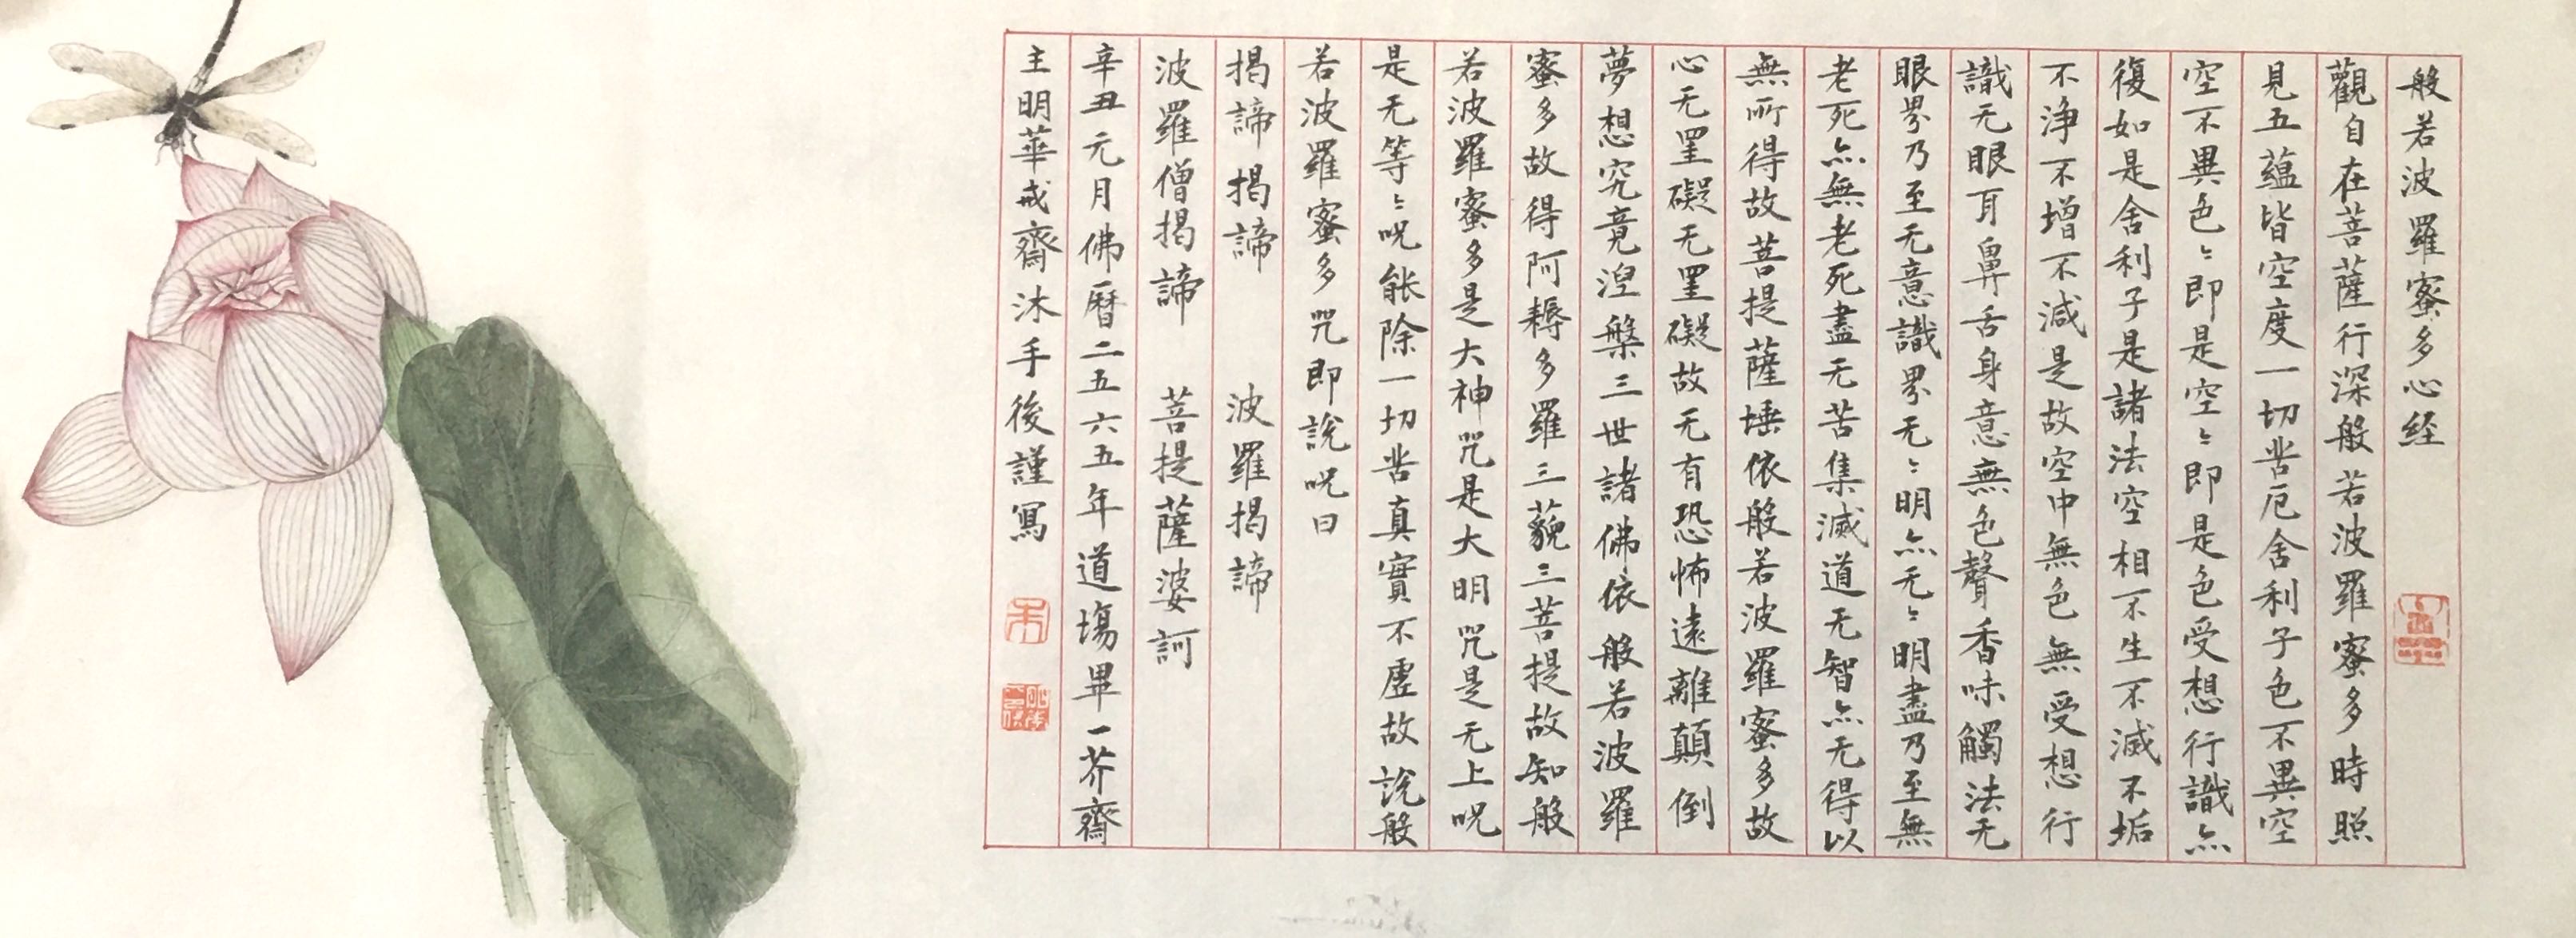 般若波羅蜜多心経
觀自在菩薩行深般若波羅蜜多時照
見五蘊皆空度一切苦厄舍利子色不異空
空不異色〻即是空〻即是色受想行識亦
復如是舍利子是諸法空相不生不滅不垢
不浄不增不減是故空中無色無受想行
識无眼耳鼻舌身意無色聲香味觸法无
眼界乃至无意識界无〻明亦无〻明盡乃至無
老死亦無老死盡无苦集滅道无智亦无得以
無所得故菩提薩埵依般若波羅蜜多故
心无罣礙无罣礙故无有恐怖遠離顛倒
夢想究竟涅槃三世諸佛依般若波羅
蜜多故得阿耨多羅三藐三菩提故知般
若波羅蜜多是大神咒是大明咒是无上呪
是无等〻呪能除一切苦真實不虛故説般
若波羅蜜多咒即説呪曰
揭諦揭諦 波羅揭諦
波羅僧揭諦 菩提薩婆訶
辛丑元月佛曆二五六五年道場畢一芥齋
主明華戒齋沐手後謹寫